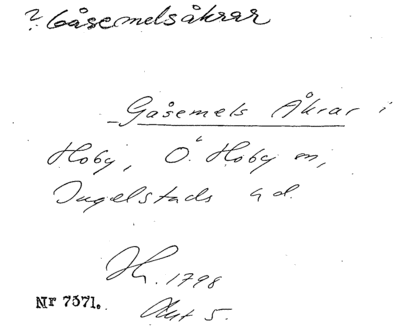 ? Gåsemelsåkrar
Gåsemels Åkrar i
Hoby, Ö. Hoby sn,
Ingelstads hd.
1798
Nr 7371.
Akt 5.